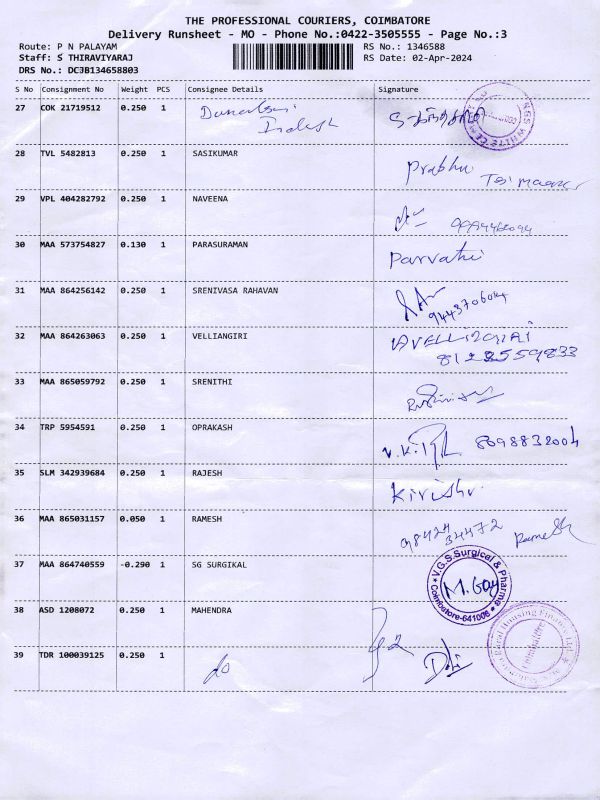 THE PROFESSIONAL COURIERS, COIMBATORE
Delivery Runsheet - MO - Phone No.:0422-3505555 - Page No.:3
Route: P N PALAYAM
RS No.: 1346588
Staff: S THIRAVIYARAJ
RS Date: 02-Apr-2024
DRS No.: DCJB134658803
S No Consignment No Weight PCS Consignee Details Signature
27 COK 21719512 0.250 1
28 TVL 5482813 0.250 1 SASIKUMAR Prabhu
29 VPL 404282792 0.250 1 NAVEENA
30 MAA 573754827 0.130 1 PARASURAMAN Parvathi
31 MAA 864256142 0.250 1 SRENIVASA RAHAVAN 9443706044
32 MAA 864263063 0.250 1 VELLIANGIRI
33 MAA 865059792 0.250 1 SRENITHI
34 TRP 5954591 0.250 1 OPRAKASH 8098832004
35 SLM 342939684 0.250 1 RAJESH
36 MAA 865031157 0.050 1 RAMESH 98424 34472 Ramesh
37 MAA 864740559 -0.290 1 SG SURGIKAL
V.G.S.Surgical & Pharma
Coimbatore-641006
38 ASD 1208072 0.250 1 MAHENDRA
39 TDR 100039125 0.250 1 do
Rural Housing Finance Ltd.
Coimbatore